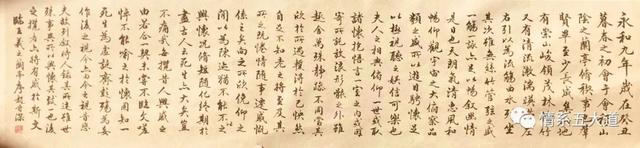 永和九年歲在癸丑
暮春之初會于會稽山
陰之蘭亭脩稧事也群
賢畢至少長咸集此地
有崇山峻領茂林脩竹
又有清流激湍暎帶左
右引以為流觴曲水列坐
其次雖無絲竹管弦之盛
一觴一詠亦足以暢敘幽情
是日也天朗氣清惠風和
暢仰觀宇宙之大俯察品
類之盛所以遊目騁懷足
以極視聽之娛信可樂也
夫人之相與俯仰一世或取
諸懷抱悟言一室之內或
寄所託放浪形骸之外雖
趣舍萬殊靜躁不同當其
欣於所遇暫得於己快然
自足不知老之將至及其
所之既惓情隨事遷感慨
係之矣向之所欣俛仰之
間以為陳迹猶不能不以之
興懷況脩短隨化終期於
盡古人云死生亦大矣豈
不痛哉每攬昔人興感之
由若合一契未嘗不臨文嗟
悼不能喻之於懷固知一
死生為虛誕齊彭殤為妄
作後之視今亦由今之視昔悲
夫故列敘時人錄其所述雖世
殊事異所以興懷其致一也後
之攬者亦將有感於斯文
臨王羲之蘭亭序
情系五大道